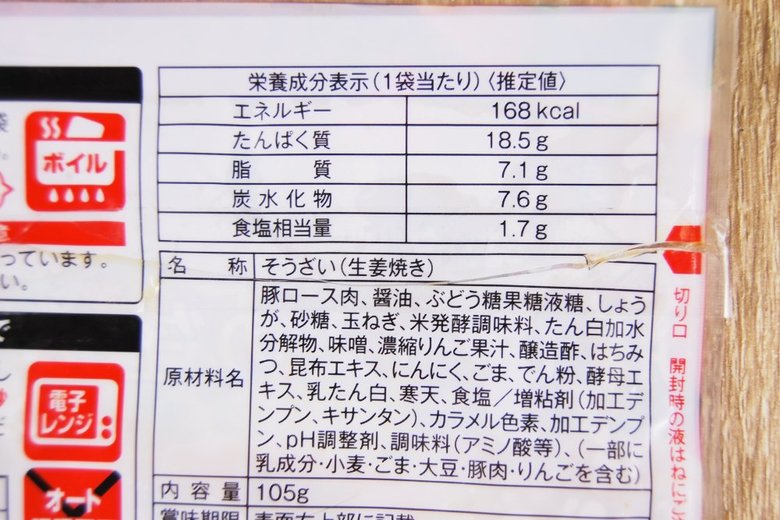 栄養成分表示(1袋当たり)〈推定値〉
エネルギー 168kcal
たんぱく質 18.5g
脂質 7.1g
炭水化物 7.6g
食塩相当量 1.7g
名称 そうざい(生姜焼き)
原材料名
豚ロース肉、醤油、ぶどう糖果糖液糖、しょう
が、砂糖、玉ねぎ、米発酵調味料、たん白加水
分解物、味噌、濃縮りんご果汁、醸造酢、はちみ
つ、昆布エキス、にんにく、ごま、でん粉、酵母エ
キス、乳たん白、寒天、食塩／増粘剤(加工デ
ンプン、キサンタン)、カラメル色素、加工デンプ
ン、pH調整剤、調味料(アミノ酸等)、(一部に
乳成分・小麦・ごま・大豆・豚肉・りんごを含む)
内容量 105g
賞味期限 表面右上部に記載
ボイル
っています。
い。
電子
レンジ
オート
切り口 開封時の液はねにご